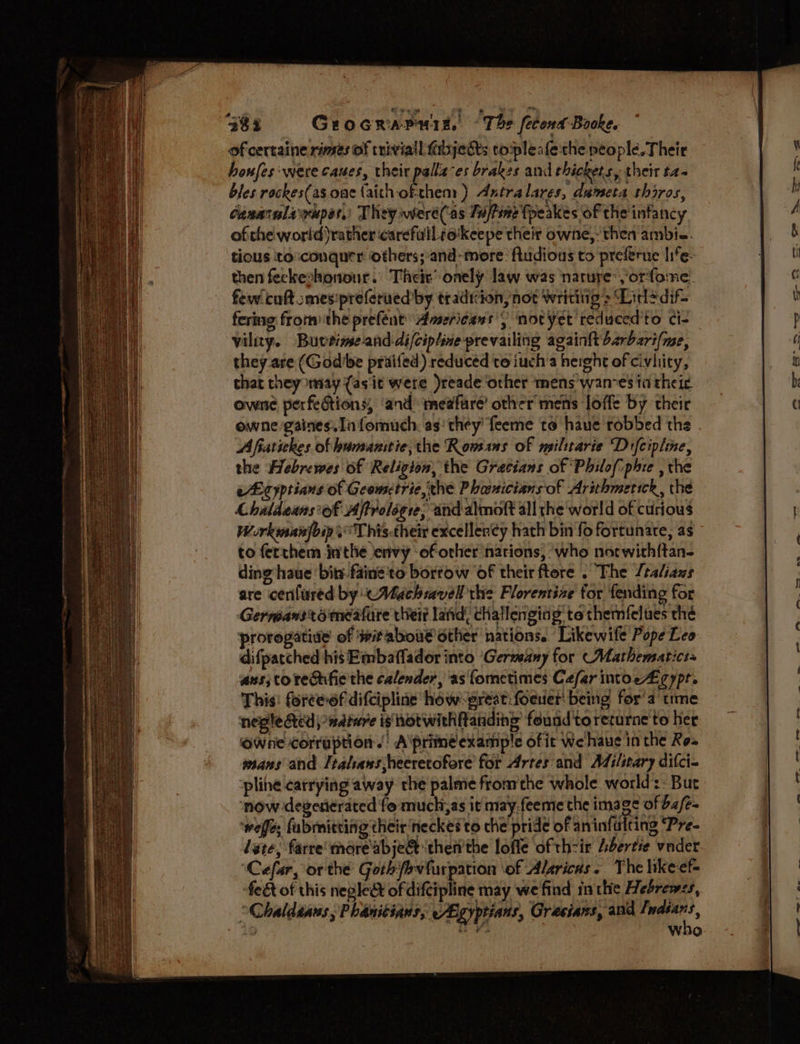 282 GEOGRAPHIE. The ſecond Booke.
of certaine rimes of triviall ſubjects to pleaſe the people. Their
houſes were caues, their pallaces brakes and thickets, their ta-
bles rockes (as one ſaith of them) Antra lares, dumeta thoros,
They were (as Iuſtine ſpeakes of the infancy
of the world) rather carefull to keepe their owne, then ambi-
tious to conquer others; and more ſtudious to preſerue life
then ſeeke honour. Their onely law was nature, or ſome
few cuſtomes preſerued by tradition, not writing: Litle dif-
fering from the preſent Americans, not yet reduced to ci-
vility. But time and diſcipline prevailing againſt barbariſme,
they are (God be praiſed) reduced to ſuch a height of civility,
that they may (as it were) reade other mens wantes in their
owne perfections, and meaſure other mens loſſe by their
owne gaines. Inſomuch as they ſeeme to haue robbed the
Aſiatickes of humanitie, the Romans of militarie Diſcipline,
the Hebrewes of Religion, the Grecians of Philoſophie, the
Ægyptians of Geometrie, the Phœnicians of Arithmetick, the
Chaldæans of Aſtrologie, and almoſt all the world of curious
Workmanſhip. This their excellency hath bin ſo fortunate, as
to ſet them in the envy of other nations, who notwithſtan-
ding haue bin faine to borrow of their ſtore. The Italians
are cenſured by Machiavell the Florentine for ſending for
Germans to meaſure their land, challenging to themſelues the
prorogatiue of wit aboue other nations. Likewiſe Pope Leo
diſpatched his Embaſſador into Germany for Mathematici-
ans, to rectifie the calender, as ſometimes Ceſar into Ægypt.
This force of diſcipline how great ſoeuer being for a time
neglected, nature is notwithſtanding found to returne to her
owne corruption. A prime example of it we haue in the Ro-
mans and Italians, heeretofore for Artes and Military diſci-
pline carrying away the palme from the whole world: But
now degenerated ſo much, as it may ſeeme the image of baſe-
neſſe, ſubmitting their neckes to the pride of an inſulting Pre-
late, farre more abject then the loſſe of their libertie vnder
Ceſar, or the Gothiſh vſurpation of Alaricus. The like ef-
fect of this neglect of diſcipline may we find in the Hebrewes,
Chaldæans, Phœnicians, Ægyptians, Grecians, and Indians,
who